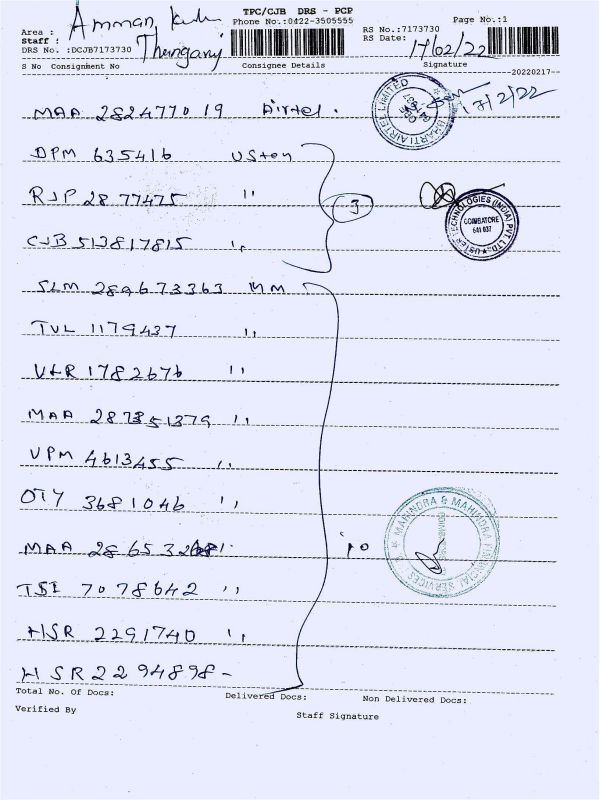 TPC/CJB DRS - PCP
Area : Amman
Phone No.:0422-3505555
Page No.:1
Staff :
RS No.:7173730
RS Date: 17/02/22
DRS No. :DCJB7173730
S No Consignment No Consignee Details Signature
--20220217--
MAA 282477019 Airtel.
17/2/22
BHARTI AIRTEL LIMITED
DPM 635416
RJP 2877475 "
3
CJB 513817815 "
USTER TECHNOLOGIES (INDIA) PVT. LTD.
COIMBATORE
641 037
SLM 289673363 MM
TVL 1179437 "
VLR 1782676 "
MAA "
VPM 4613455 "
OTY 3681046 "
MAA
10
MAHINDRA & MAHINDRA FINANCIAL SERVICES
TSI 7078642 "
HSR 2291740 "
HSR 2294898 -
Total No. Of Docs: Delivered Docs: Non Delivered Docs:
Verified By
Staff Signature